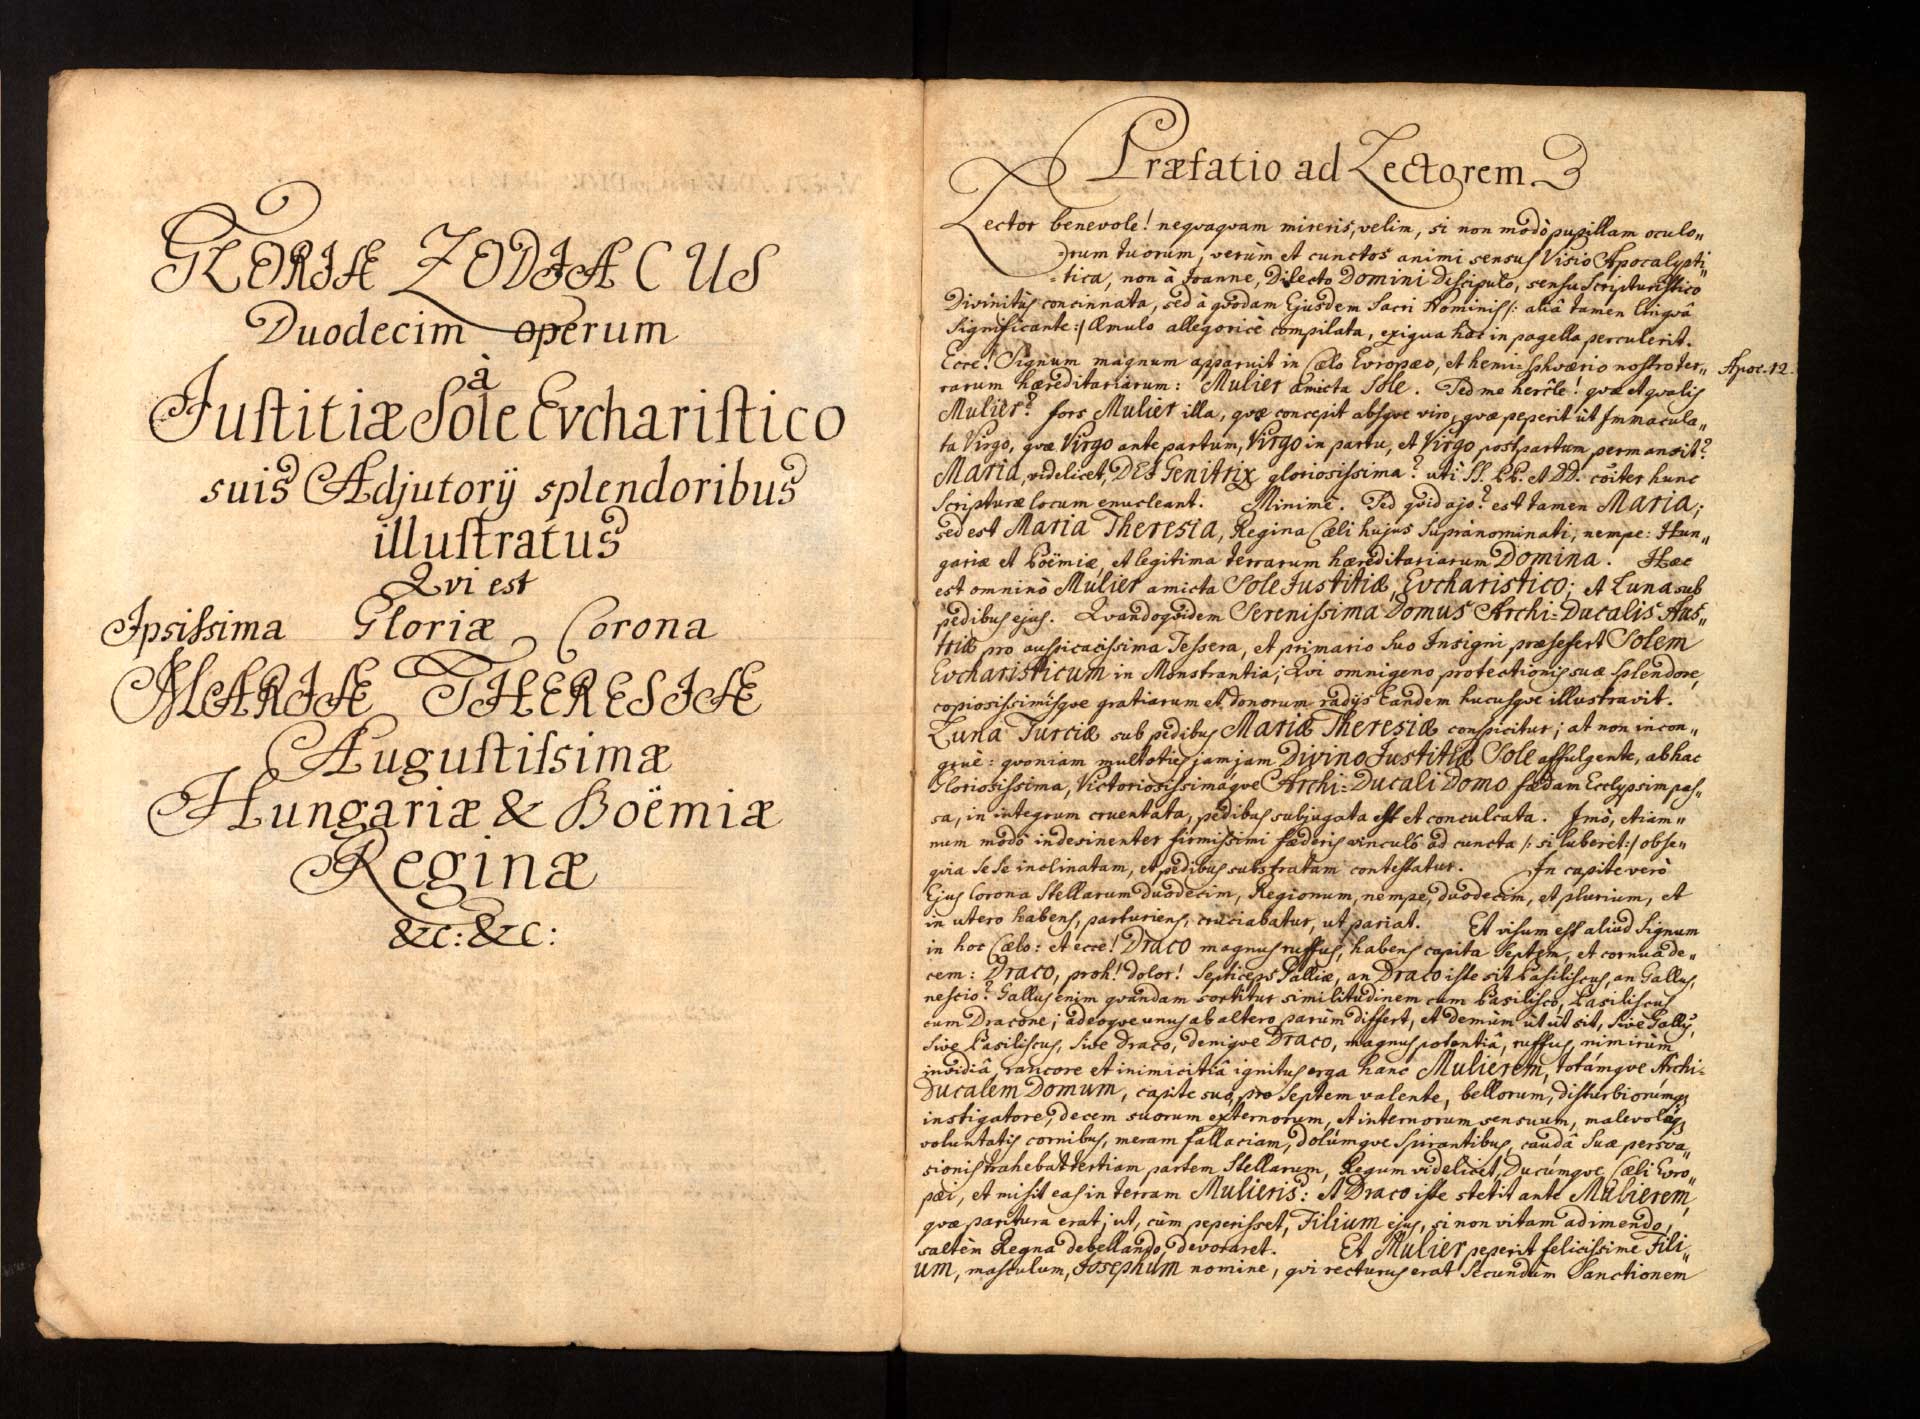 GLORIÆ ZODIACUS
Duodecim operum
à
Justitiæ Sole Evcharistico
suis Adjutorÿ splendoribus
illustratus
Qvi est
Ipsissima Gloriæ Corona
MARIÆ THERESIÆ
Augustissimæ
Hungariæ & Boëmiæ
Reginæ
&c: &c:
Præfatio ad Lectorem
Lector benevole! neqvaqvam mireris, velim, si non modò pupillam oculo„
rum tuorum, verùm et cunctos animi sensus Visio Apocalypti„
tica, non à Joanne, Dilecto Domini Discipulo, sensu Scripturistico
Divinitùs concinnata, sed à qvodam Ejusdem Sacri Nominis /: aliâ tamen lingvâ
significante :/ Æmulo allegoricè compilata, exigua hac in pagella perculerit.
Ecce! Signum magnum apparuit in Cœlo Evropæo, et hemi=sphærio nostro ter„
Apoc. 12.
rarum hæreditariarum: Mulier amicta Sole. Sed me hercle! qvæ et qvalis
Mulier? fors Mulier illa, qvæ concepit absqve viro, qvæ peperit ùt Immacula„
ta Virgo, qvæ Virgo ante partum, Virgo in partu, et Virgo post partum permansit?
Maria, videlicet, DEI Genitrix gloriosissima? uti SS. PP. et DD. cõiter hunc
Scripturæ locum enucleant. Minimè. Sed qvid ajo? est tamen Maria;
sed est Maria Theresia, Regina Cœli hujus supranominati, nempe: Hun„
gariæ et Boëmiæ, et legitima terrarum hæreditariarum Domina. Hæc
est omninò Mulier amicta Sole Justitiæ, Evcharistico; et Luna sub
pedibus ejus. Qvandoqvidem Serenissima Domus Archi=Ducalis Aus„
triæ pro auspicacissima Tessera, et primario suo Insigni præsefert Solem
Evcharisticum in Monstrantia; Qvi omnigeno protectionis suæ splendore,
copiosissimisqve gratiarum et donorum radÿs Eandem hucusqve illustravit.
Luna Turciæ sub pedibus Mariæ Theresiæ conspicitur; at non incon„
gruè: qvoniam multoties jamjam Divino Justitiæ Sole affulgente, ab hac
Gloriosissima, Victoriosissimáqve Archi=Ducali Domo fœdam Ecclypsim pas„
sa, in integrum cruentata, pedibus subjugata est et conculcata. Imò, etiam„
num modò indesinenter firmissimi fœderis vinculô ad cuncta /: si luberet :/ obse„
qvia sese inclinatam, et pedibus substratam contestatur. In capite verò
Ejus Corona Stellarum duodecim, Regionum, nempe, duodecim, et plurium, et
in utero habens, parturiens, cruciabatur, ut pariat. Et visum est aliud Signum
in hoc Cœlo: et ecce! Draco magnus ruffus, habens capita septem, et cornua de„
cem: Draco, proh! dolor! Septiceps Galliæ, an Draco iste sit Basiliscus, an Gallus,
nescio? Gallus enim qvandam sortitur similitudinem cum Basilisco, Basiliscus
cum Dracone; adeoqve unus ab altero parùm differt, et demùm ùt ùt sit, sive Gallus,
sive Basiliscus, sive Draco, deniqve Draco, magnus potentiâ, ruffus, nimirùm
invidiâ, rancore et inimicitiâ ignitus erga hanc Mulierem, totámqve Archi=
Ducalem Domum, capite suo, pro septem valente, bellorum, disturbiorúmq;
instigatore, decem suorum externorum, et internorum sensuum, malevolæq;
voluntatis cornibus, meram fallaciam, dolúmqve spirantibus, caudâ suæ persva„
sionis trahebat tertiam partem Stellarum, Regum videlicet, Ducúmqve Cœli Evro„
pæi, et misit eas in terram Mulieris: et Draco iste stetit ante Mulierem,
qvæ paritura erat; ut, cùm peperisset, Filium ejus, si non vitam adimendo,
saltèm Regna debellando, devoraret. Et Mulier peperit felicissimè Fili„
um, masculum, Josephum nomine, qvi recturus erat secundùm Sanctionem